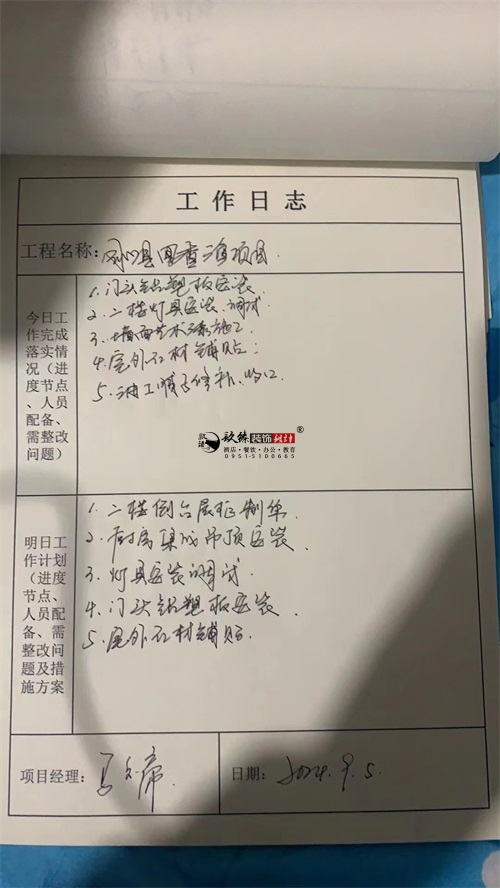 工作日志
工程名称:
今日工作完成落实情况（进度节点、人员配备、需整改问题）
1. 门头铝塑板安装
2. 二楼灯具安装、调试
3. 墙面艺术漆施工
4. 室外石材铺贴
5. 油工顺子修补、收口
玖臻装饰设计®
酒店·餐饮·办公·教育
0951-5100665
明日工作计划（进度节点、人员配备、需整改问题及措施方案
1. 二楼倒台展柜制单
2. 厨房集成吊顶安装
3. 灯具安装调试
4. 门头铝塑板安装
5. 室外石材铺贴
项目经理:
日期: 2024.9.5.